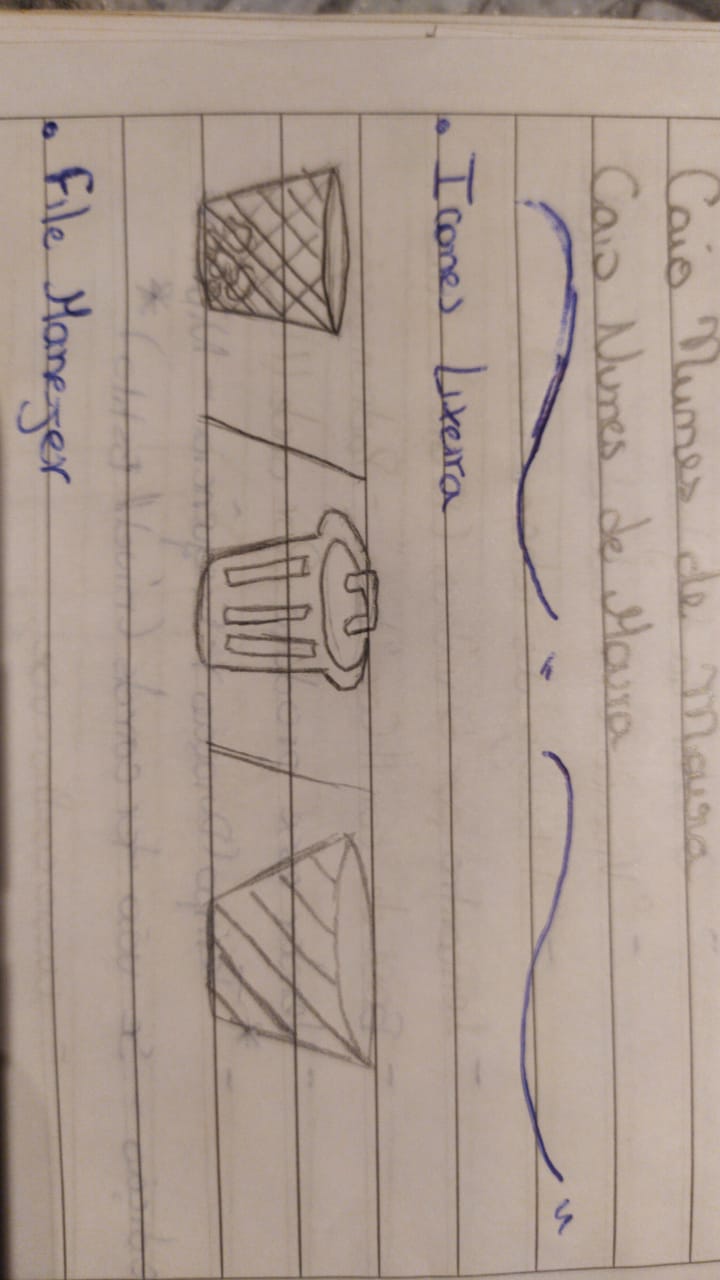 Caio Nunes de Moura
Caio Nunes de Moura
• Icones Lixeira
• File Maneger